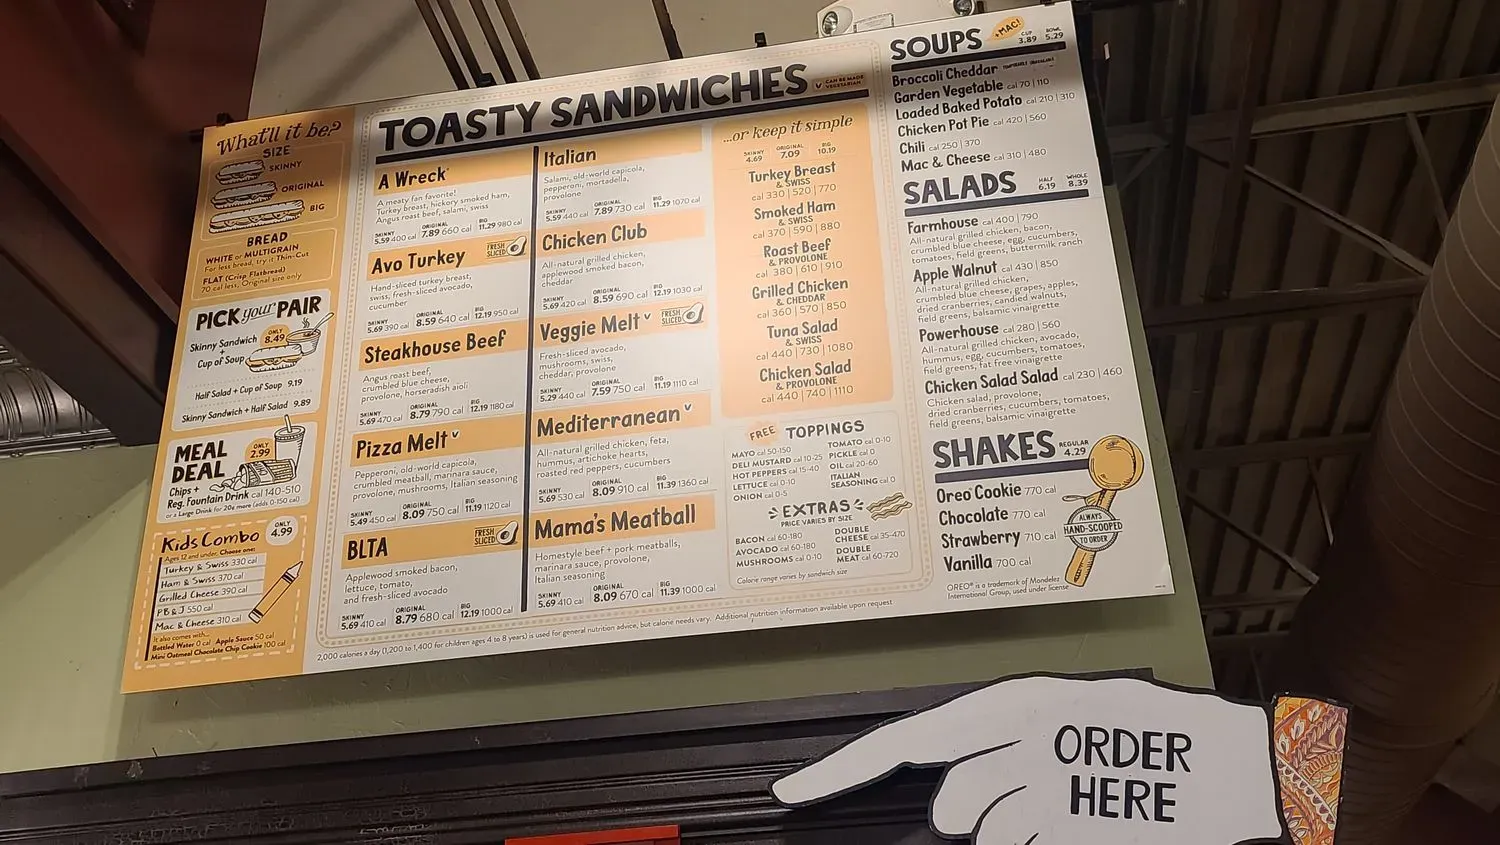 What'll it be?
SIZE
SKINNY
ORIGINAL
BIG
BREAD
WHITE or MULTIGRAIN
For less bread, try it Thin-Cut
FLAT (Crisp Flatbread)
70 cal less, Original size only
PICK your PAIR
Skinny Sandwich
+
Cup of Soup
ONLY
8.49
Half Salad + Cup of Soup 9.19
Skinny Sandwich + Half Salad 9.89
MEAL
DEAL
ONLY
2.99
Chips +
Reg. Fountain Drink cal 140-510
or a Large Drink for 20¢ more (adds 0-150 cal)
Kids Combo
ONLY
4.99
Ages 12 and under. Choose one:
Turkey & Swiss 330 cal
Ham & Swiss 370 cal
Grilled Cheese 390 cal
PB & J 550 cal
Mac & Cheese 310 cal
It also comes with...
Bottled Water 0 cal Apple Sauce 50 cal
Mini Oatmeal Chocolate Chip Cookie 100 cal
TOASTY SANDWICHES
V CAN BE MADE
VEGETARIAN
A Wreck
A meaty fan favorite!
Turkey breast, hickory smoked ham,
Angus roast beef, salami, swiss
SKINNY ORIGINAL BIG
5.59 400 cal 7.89 660 cal 11.29 980 cal
Avo Turkey
FRESH
SLICED
Hand-sliced turkey breast,
swiss, fresh-sliced avocado,
cucumber
SKINNY ORIGINAL BIG
5.69 390 cal 8.59 640 cal 12.19 950 cal
Steakhouse Beef
Angus roast beef,
crumbled blue cheese,
provolone, horseradish aioli
SKINNY ORIGINAL BIG
5.69 470 cal 8.79 790 cal 12.19 1180 cal
Pizza Melt V
Pepperoni, old-world capicola,
crumbled meatball, marinara sauce,
provolone, mushrooms, Italian seasoning
SKINNY ORIGINAL BIG
5.49 450 cal 8.09 750 cal 11.19 1120 cal
BLTA
FRESH
SLICED
Applewood smoked bacon,
lettuce, tomato,
and fresh-sliced avocado
SKINNY ORIGINAL BIG
5.69 410 cal 8.79 680 cal 12.19 1000 cal
Italian
Salami, old-world capicola,
pepperoni, mortadella,
provolone
SKINNY ORIGINAL BIG
5.59 440 cal 7.89 730 cal 11.29 1070 cal
Chicken Club
All-natural grilled chicken,
applewood smoked bacon,
cheddar
SKINNY ORIGINAL BIG
5.69 420 cal 8.59 690 cal 12.19 1030 cal
Veggie Melt V
FRESH
SLICED
Fresh-sliced avocado,
mushrooms, swiss,
cheddar, provolone
SKINNY ORIGINAL BIG
5.29 440 cal 7.59 750 cal 11.19 1110 cal
Mediterranean V
All-natural grilled chicken, feta,
hummus, artichoke hearts,
roasted red peppers, cucumbers
SKINNY ORIGINAL BIG
5.69 530 cal 8.09 910 cal 11.39 1360 cal
Mama's Meatball
Homestyle beef + pork meatballs,
marinara sauce, provolone,
Italian seasoning
SKINNY ORIGINAL BIG
5.69 410 cal 8.09 670 cal 11.39 1000 cal
...or keep it simple
SKINNY ORIGINAL BIG
4.69 7.09 10.19
Turkey Breast
& SWISS
cal 330 | 520 | 770
Smoked Ham
& SWISS
cal 370 | 590 | 880
Roast Beef
& PROVOLONE
cal 380 | 610 | 910
Grilled Chicken
& CHEDDAR
cal 360 | 570 | 850
Tuna Salad
& SWISS
cal 440 | 730 | 1080
Chicken Salad
& PROVOLONE
cal 440 | 740 | 1110
FREE TOPPINGS
MAYO cal 50-150
DELI MUSTARD cal 10-25
HOT PEPPERS cal 15-40
LETTUCE cal 0-10
ONION cal 0-5
TOMATO cal 0-10
PICKLE cal 0
OIL cal 20-60
ITALIAN
SEASONING cal 0
EXTRAS
PRICE VARIES BY SIZE
BACON cal 60-180
AVOCADO cal 60-180
MUSHROOMS cal 0-10
DOUBLE
CHEESE cal 35-470
DOUBLE
MEAT cal 60-720
Calorie range varies by sandwich size
2,000 calories a day (1,200 to 1,400 for children ages 4 to 8 years) is used for general nutrition advice, but calorie needs vary. Additional nutrition information available upon request
SOUPS
+MAC!
CUP BOWL
3.89 5.29
Broccoli Cheddar
Garden Vegetable cal 70 | 110
Loaded Baked Potato cal 210 | 310
Chicken Pot Pie cal 420 | 560
Chili cal 250 | 370
Mac & Cheese cal 310 | 480
SALADS
HALF WHOLE
6.19 8.39
Farmhouse cal 400 | 790
All-natural grilled chicken, bacon,
crumbled blue cheese, egg, cucumbers,
tomatoes, field greens, buttermilk ranch
Apple Walnut cal 430 | 850
All-natural grilled chicken,
crumbled blue cheese, grapes, apples,
dried cranberries, candied walnuts,
field greens, balsamic vinaigrette
Powerhouse cal 280 | 560
All-natural grilled chicken, avocado,
hummus, egg, cucumbers, tomatoes,
field greens, fat free vinaigrette
Chicken Salad Salad cal 230 | 460
Chicken salad, provolone,
dried cranberries, cucumbers, tomatoes,
field greens, balsamic vinaigrette
SHAKES
REGULAR
4.29
Oreo Cookie 770 cal
Chocolate 770 cal
Strawberry 710 cal
Vanilla 700 cal
ALWAYS
HAND-SCOOPED
TO ORDER
OREO® is a trademark of Mondelez
International Group, used under license
ORDER
HERE